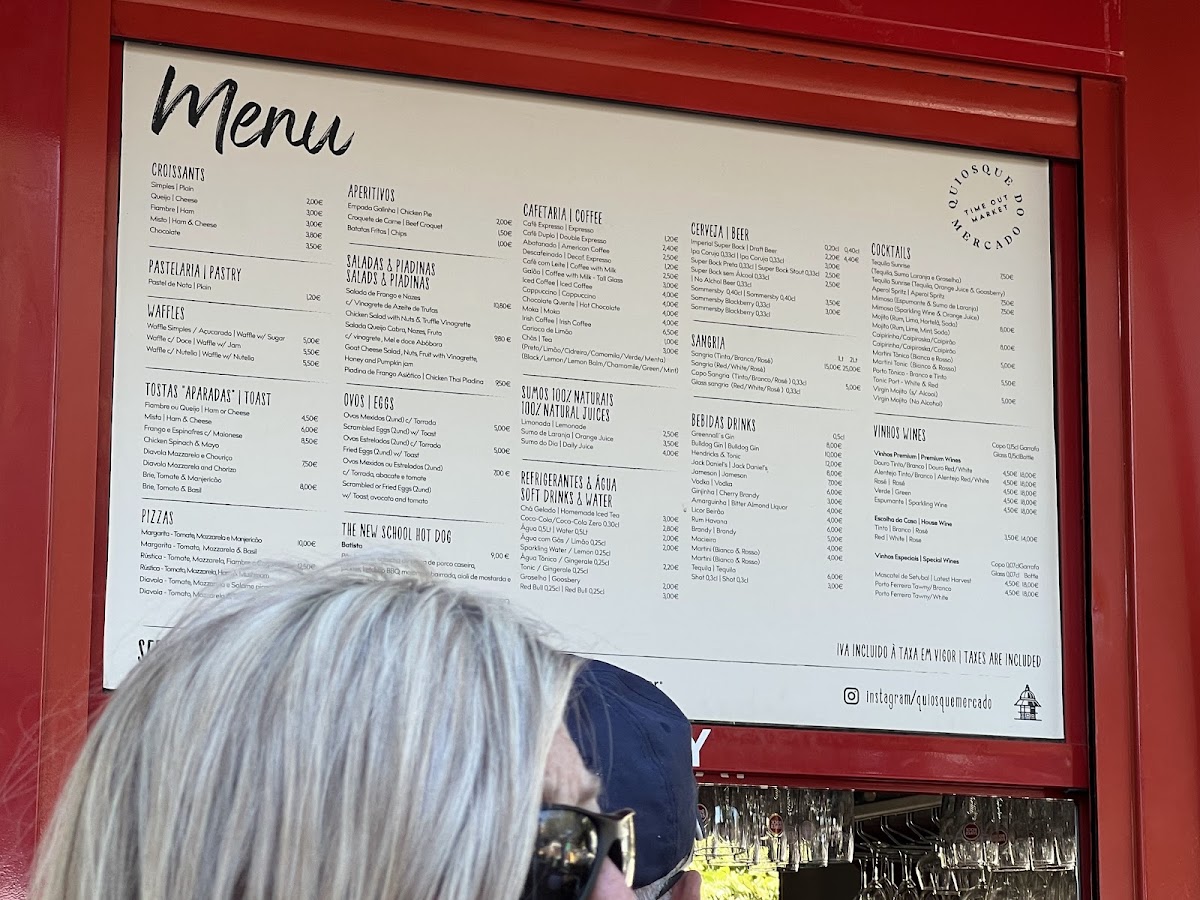 Menu
CROISSANTS
Simples | Plain 2,00€
Queijo | Cheese 3,00€
Fiambre | Ham 3,00€
Misto | Ham & Cheese 3,80€
Chocolate 3,50€
PASTELARIA | PASTRY
Pastel de Nata | Plain 1,20€
WAFFLES
Waffle Simples / Açucarada | Waffle w/ Sugar 5,00€
Waffle c/ Doce | Waffle w/ Jam 5,50€
Waffle c/ Nutella | Waffle w/ Nutella 5,50€
TOSTAS "APARADAS" | TOAST
Fiambre ou Queijo | Ham or Cheese 4,50€
Misto | Ham & Cheese 6,00€
Frango e Espinafres c/ Maionese 8,50€
Chicken Spinach & Mayo
Diavola Mozzarella e Chouriço 7,50€
Diavola Mozzarella and Chorizo
Brie, Tomate & Manjericão 8,00€
Brie, Tomato & Basil
PIZZAS
Margarita - Tomate, Mozzarela e Manjericão 10,00€
Margarita - Tomato, Mozzarella & Basil
Rústica - Tomate, Mozzarela, Fiambre
Rústica - Tomato, Mozzarella, Ham &
Diavola - Tomate, Mozzarela e Salame
Diavola - Tomato, Mozzarella
APERITIVOS
Empada Galinha | Chicken Pie 2,00€
Croquete de Carne | Beef Croquet 1,50€
Batatas Fritas | Chips 1,00€
SALADAS & PIADINAS
SALADS & PIADINAS
Salada de Frango e Nozes
c/ Vinagrete de Azeite de Trufas 10,80€
Chicken Salad with Nuts & Truffle Vinagrette
Salada Queijo Cabra, Nozes, Fruta
c/ vinagrete, Mel e doce Abóbora 9,80€
Goat Cheese Salad, Nuts, Fruit with Vinagrette,
Honey and Pumpkin jam
Piadina de Frango Asiático | Chicken Thai Piadina 9,50€
OVOS | EGGS
Ovos Mexidos (2und) c/ Torrada
Scrambled Eggs (2und) w/ Toast 5,00€
Ovos Estrelados (2und) c/ Torrada
Fried Eggs (2und) w/ Toast 5,00€
Ovos Mexidos ou Estrelados (2und)
c/ Torrada, abacate e tomate 7,00 €
Scrambled or Fried Eggs (2und)
w/ Toast, avocato and tomato
THE NEW SCHOOL HOT DOG
Batista 9,00 €
de porco caseira,
BBQ barrada, aioli de mostarda e
CAFETARIA | COFFEE
Café Expresso | Expresso 1,20€
Café Duplo | Double Expresso 2,40€
Abatanado | American Coffee 2,50€
Descafeinado | Decaf. Expresso 1,20€
Café com Leite | Coffee with Milk 2,50€
Galão | Coffee with Milk - Tall Glass 2,50€
Iced Coffee | Iced Coffee 3,00€
Cappuccino | Cappuccino 4,00€
Chocolate Quente | Hot Chocolate 4,00€
Moka | Moka 4,00€
Irish Coffee | Irish Coffee 6,50€
Carioca de Limão 1,00€
Chás | Tea 3,00€
(Preto/Limão/Cidreira/Camomila/Verde/Menta)
(Black/Lemon/Lemon Balm/Chamomile/Green/Mint)
SUMOS 100% NATURAIS
100% NATURAL JUICES
Limonada | Lemonade 2,50€
Sumo de Laranja | Orange Juice 3,50€
Sumo do Dia | Daily Juice 4,00€
REFRIGERANTES & ÁGUA
SOFT DRINKS & WATER
Chá Gelado | Homemade Iced Tea 3,00€
Coca-Cola/Coca-Cola Zero 0.30cl 2,80€
Água 0,5Lt | Water 0,5Lt 2,00€
Água com Gás / Limão 0.25cl
Sparkling Water / Lemon 0.25cl 2,20€
Água Tónica / Gingerale 0.25cl
Tonic / Gingerale 0,25cl
Groselha | Goosbery 2,00€
Red Bull 0,25cl | Red Bull 0,25cl 3,00€
CERVEJA | BEER
0,20cl 0,40cl
Imperial Super Bock | Draft Beer
Ipa Coruja 0,33cl | Ipa Coruja 0,33cl
Super Bock Preta 0,33cl | Super Bock Stout 0,33cl
Super Bock sem Álcool 0,33cl
| No Alchol Beer 0,33cl
Sommersby 0,40cl | Sommersby 0,40cl 3,50€
Sommersby Blackberry 0,33cl
Sommersby Blackberry 0,33cl 3,00€
SANGRIA
1Lt 2Lt
Sangria (Tinto/Branco/Rosé)
Sangria (Red/White/Rosé) 15,00€ 25,00€
Copo Sangria (Tinto/Branco/Rosé) 0,33cl
Glass sangria (Red/White/Rosé) 0,33cl 5,00€
BEBIDAS DRINKS
0,5cl
Greennall's Gin 8,00€
Bulldog Gin | Bulldog Gin 10,00€
Hendricks & Tonic 12,00€
Jack Daniel's | Jack Daniel's
Jameson | Jameson
Vodka | Vodka
Ginjinha | Cherry Brandy
Amarguinha | Bitter Almond Liquor
Licor Beirão
Rum Havana
Brandy | Brandy
Macieira
Martini (Bianco & Rosso)
Martini (Bianco & Rosso)
Tequila | Tequila 6,00€
Shot 0,3cl | Shot 0,3cl 3,00€
QUIOSQUE DO MERCADO
TIME OUT
MARKET
COCKTAILS
Tequila Sunrise
(Tequila, Sumo Laranja e Groselha) 7,50€
Tequila Sunrise (Tequila, Orange Juice & Goosbery)
Aperol Spritz | Aperol Spritz 7,50€
Mimosa (Espumante & Sumo de Laranja) 7,50€
Mimosa (Sparkling Wine & Orange Juice)
Mojito (Rum, Lima, Hortelã, Soda) 8,00€
Mojito (Rum, Lime, Mint, Soda)
Caipirinha/Caipiroska/Caipirão 8,00€
Caipirinha/Caipiroska/Caipirão
Martini Tónico (Bianco e Rosso) 5,00€
Martini Tonic (Bianco & Rosso)
Porto Tónico - Branco e Tinto 5,50€
Tonic Port - White & Red
Virgin Mojito (s/ Alcool) 5,00€
Virgin Mojito (No Alcohol)
VINHOS WINES
Copo 0,15cl Garrafa
Vinhos Premium | Premium Wines Glass 0,15cl Bottle
Douro Tinto/Branco | Douro Red/White 4,50€ 18,00€
Alentejo Tinto/Branco | Alentejo Red/White 4,50€ 18,00€
Rosé | Rosé 4,50€ 18,00€
Verde | Green 4,50€ 18,00€
Espumante | Sparkling Wine 4,50€ 18,00€
Escolha da Casa | House Wine
Tinto | Branco | Rosé
Red | White | Rosé 3,50€ 14,00€
Vinhos Especiais | Special Wines Copo 0,07cl Garrafa
Glass 0,07cl Bottle
Moscatel de Setubal | Latest Harvest 4,50€ 18,00€
Porto Ferreira Tawny/Branco 4,50€ 18,00€
Porto Ferreira Tawny/White
IVA INCLUIDO À TAXA EM VIGOR | TAXES ARE INCLUDED
instagram/quiosquemercado
Y